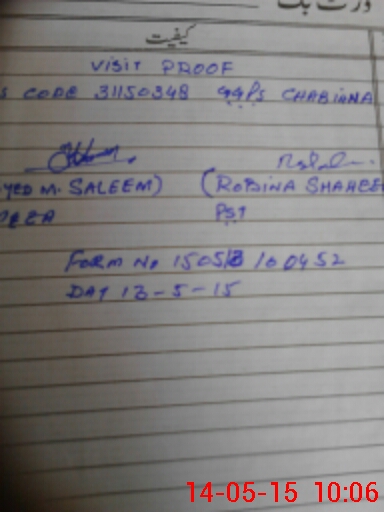 کیفیت
VISIT PROOF
S CODE 31150348 GGPS CHABIANA
YED M. SALEEM) (ROBINA SHAHEE
PST
FORM NO
DAY 13-5-15
14-05-15 10:06